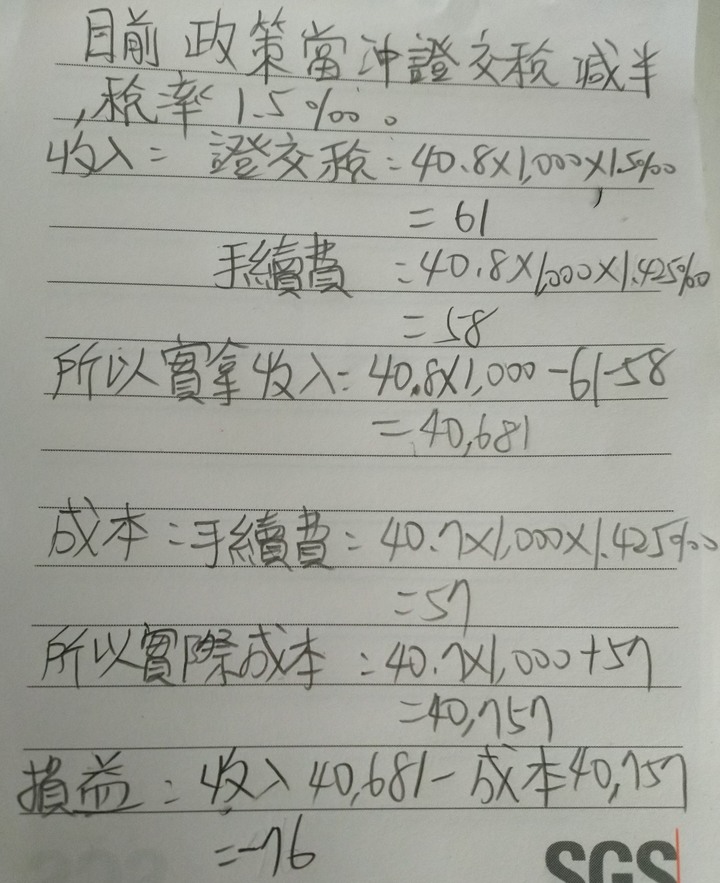 目前政策當沖證交稅減半
,稅率1.5‰。
收入= 證交稅:40.8×1,000×1.5‰
=61
手續費:40.8×1,000×1.425‰
=58
所以實拿收入:40.8×1,000-61-58
=40,681
成本:手續費:40.7×1,000×1.425‰
=57
所以實際成本:40.7×1,000+57
=40,757
損益:收入40,681-成本40,757
=-76
SGS